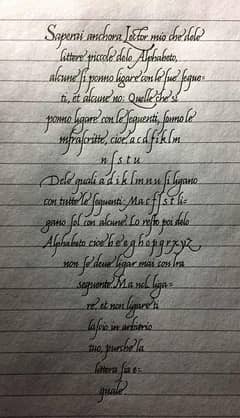 Saperai anchora Lector mio che dele
littere piccole delo Alphabeto,
alcune si ponno ligare con le sue seque-
ti, et alcune no: Quelle che si
ponno ligare con le sequenti, sonno le
infrascritte, cioe, a c d f i k l m
n ſ s t u
Dele quali a d i k l m n u si ligano
con tutte le sequenti: Ma c f ſ s t li-
gano sol con alcune. Lo resto poi delo
Alphabeto cioe b e e g h o p q r x y z
non se deue ligar mai con lra
sequente. Ma nel liga-
re, et non ligare ti
lasscio in arbitrio
tuo, purche la
littera sia e-
quale.